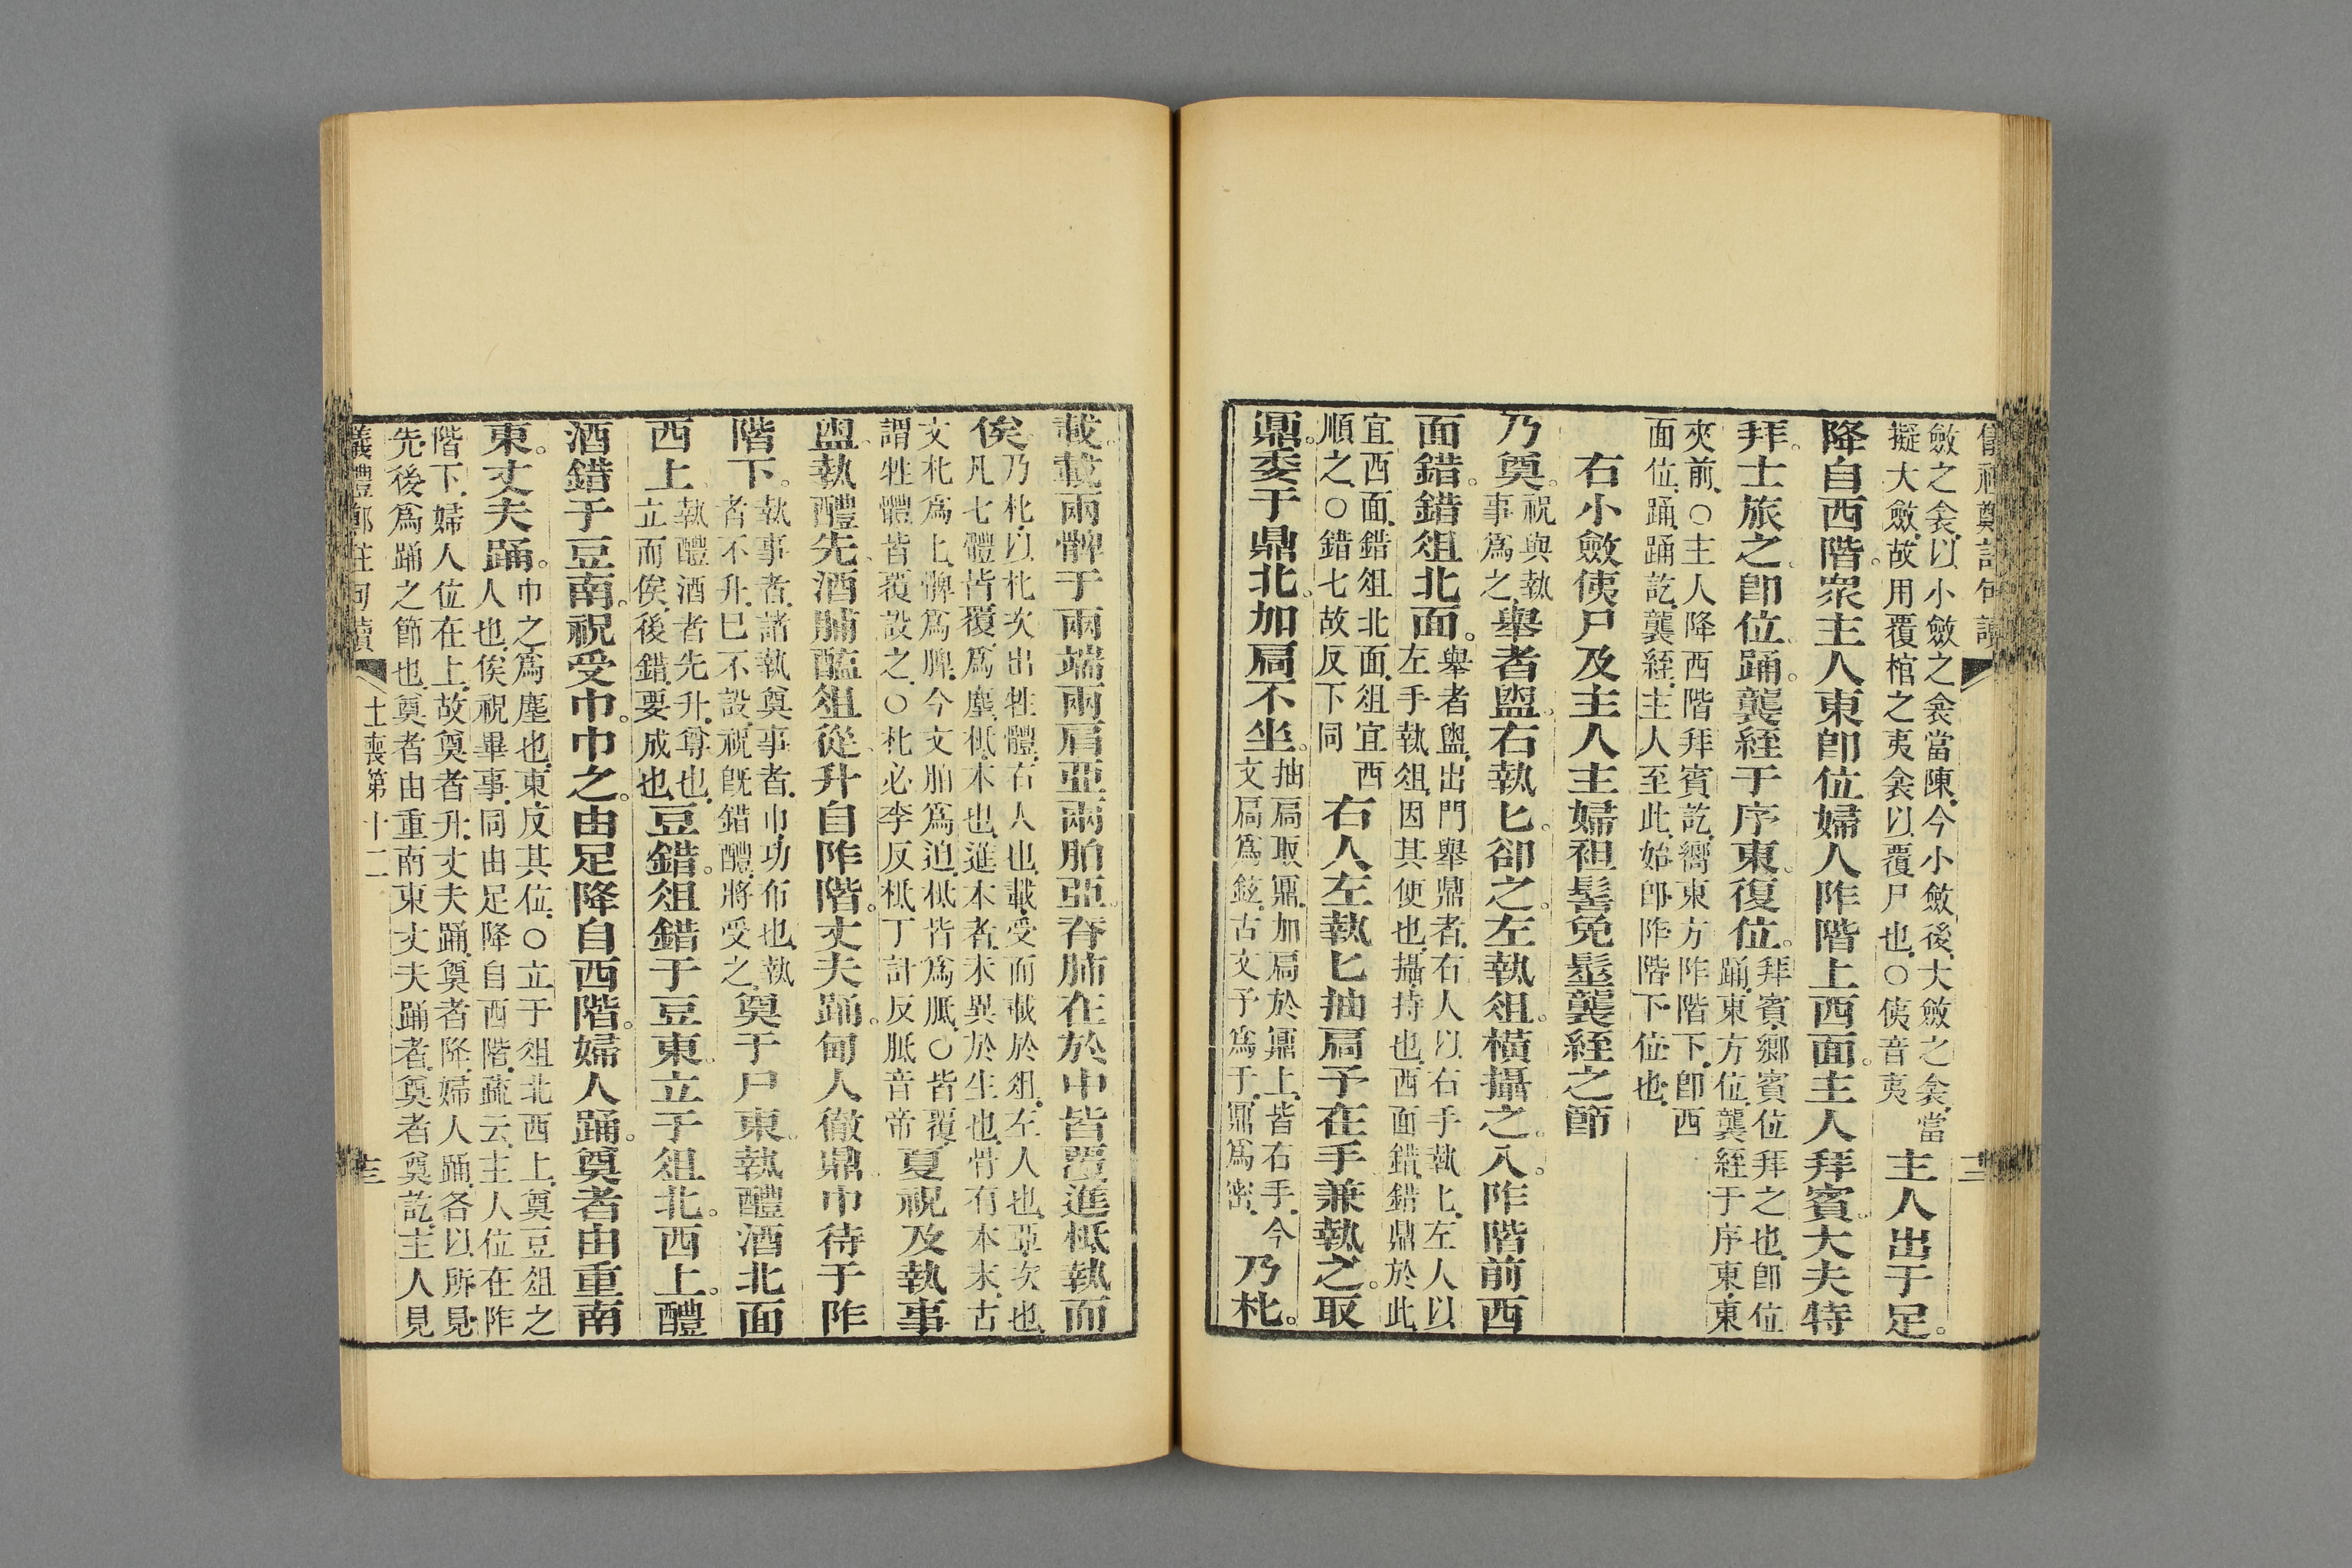 斂之衾,以小斂之衾當陳,今小斂後,大斂之衾,當擬大斂,故用覆棺之夷衾以覆尸也,○侇音夷主人出于足。
降自西階。衆主人東卽位婦人阼階上西面。主人拜賓。大夫特
拜。士旅之。卽位。踊。襲絰于序東。復位。拜賓,鄉賓位拜之也,卽位踊,東方位,襲絰于序東,東
夾前,○主人降西階拜賓訖,嚮東方阼階下,卽西面位,踊,踊訖,襲絰,主人至此,始卽阼階下位也,
右小斂侇尸及主人主婦袒髺免髽襲絰之節
乃奠。祝與執事爲之,舉者盥。右執匕。卻之。左執俎。橫攝之。入。阼階前西
面錯。錯俎北面。舉者盥,出門舉鼎者,右人以右手執匕,左人以左手執俎,因其便也,攝,持也,西面錯,錯鼎於此
宜西面,錯俎北面,俎宜西順之,○錯七故反下同右人左執匕抽扃予在手兼執之。取
鼏。委于鼎北。加扃不坐。抽扃取鼏,加扃於鼏上,皆右手,今文扃爲鉉,古文予爲于,鼏爲密,乃朼。
載。載兩髀于兩端兩肩亞兩胉亞。脊肺在於中皆覆進柢執而
俟。乃朼,以朼次出牲體,右人也,載,受而載於俎,左人也,亞,次也,凡七體皆覆,爲塵,柢,本也,進本者,未異於生也,骨有本末,古
文朼爲匕,髀爲脾,今文胉爲迫,柢皆爲胝,○皆覆,謂牲體皆覆設之,○朼必李反柢丁計反胝音帝夏祝及執事
盥。執醴先。酒脯醢俎從。升自阼階。丈夫踊。甸人徹鼎。巾待于阼
階下。執事者,諸執奠事者,巾,功布也,執者不升,巳不設,祝旣錯醴,將受之,奠于尸東。執醴酒北面
西上。執醴酒者先升,尊也,立而俟,後錯,要成也,豆錯。俎錯于豆東。立于俎北。西上。醴
酒錯于豆南。祝受巾。巾之。由足降自西階。婦人踊。奠者由重南
東。丈夫踊。巾之,爲塵也,東反其位,○立于俎北西上,奠豆俎之人也,俟祝畢事,同由足降自西階,疏云,主人位在阼
階下,婦人位在上,故奠者升,丈夫踊,奠者降,婦人踊,各以所見先後爲踊之節也,奠者由重南東丈夫踊者,奠者奠訖,主人見
儀禮鄭註句讀 士喪第十二 十三